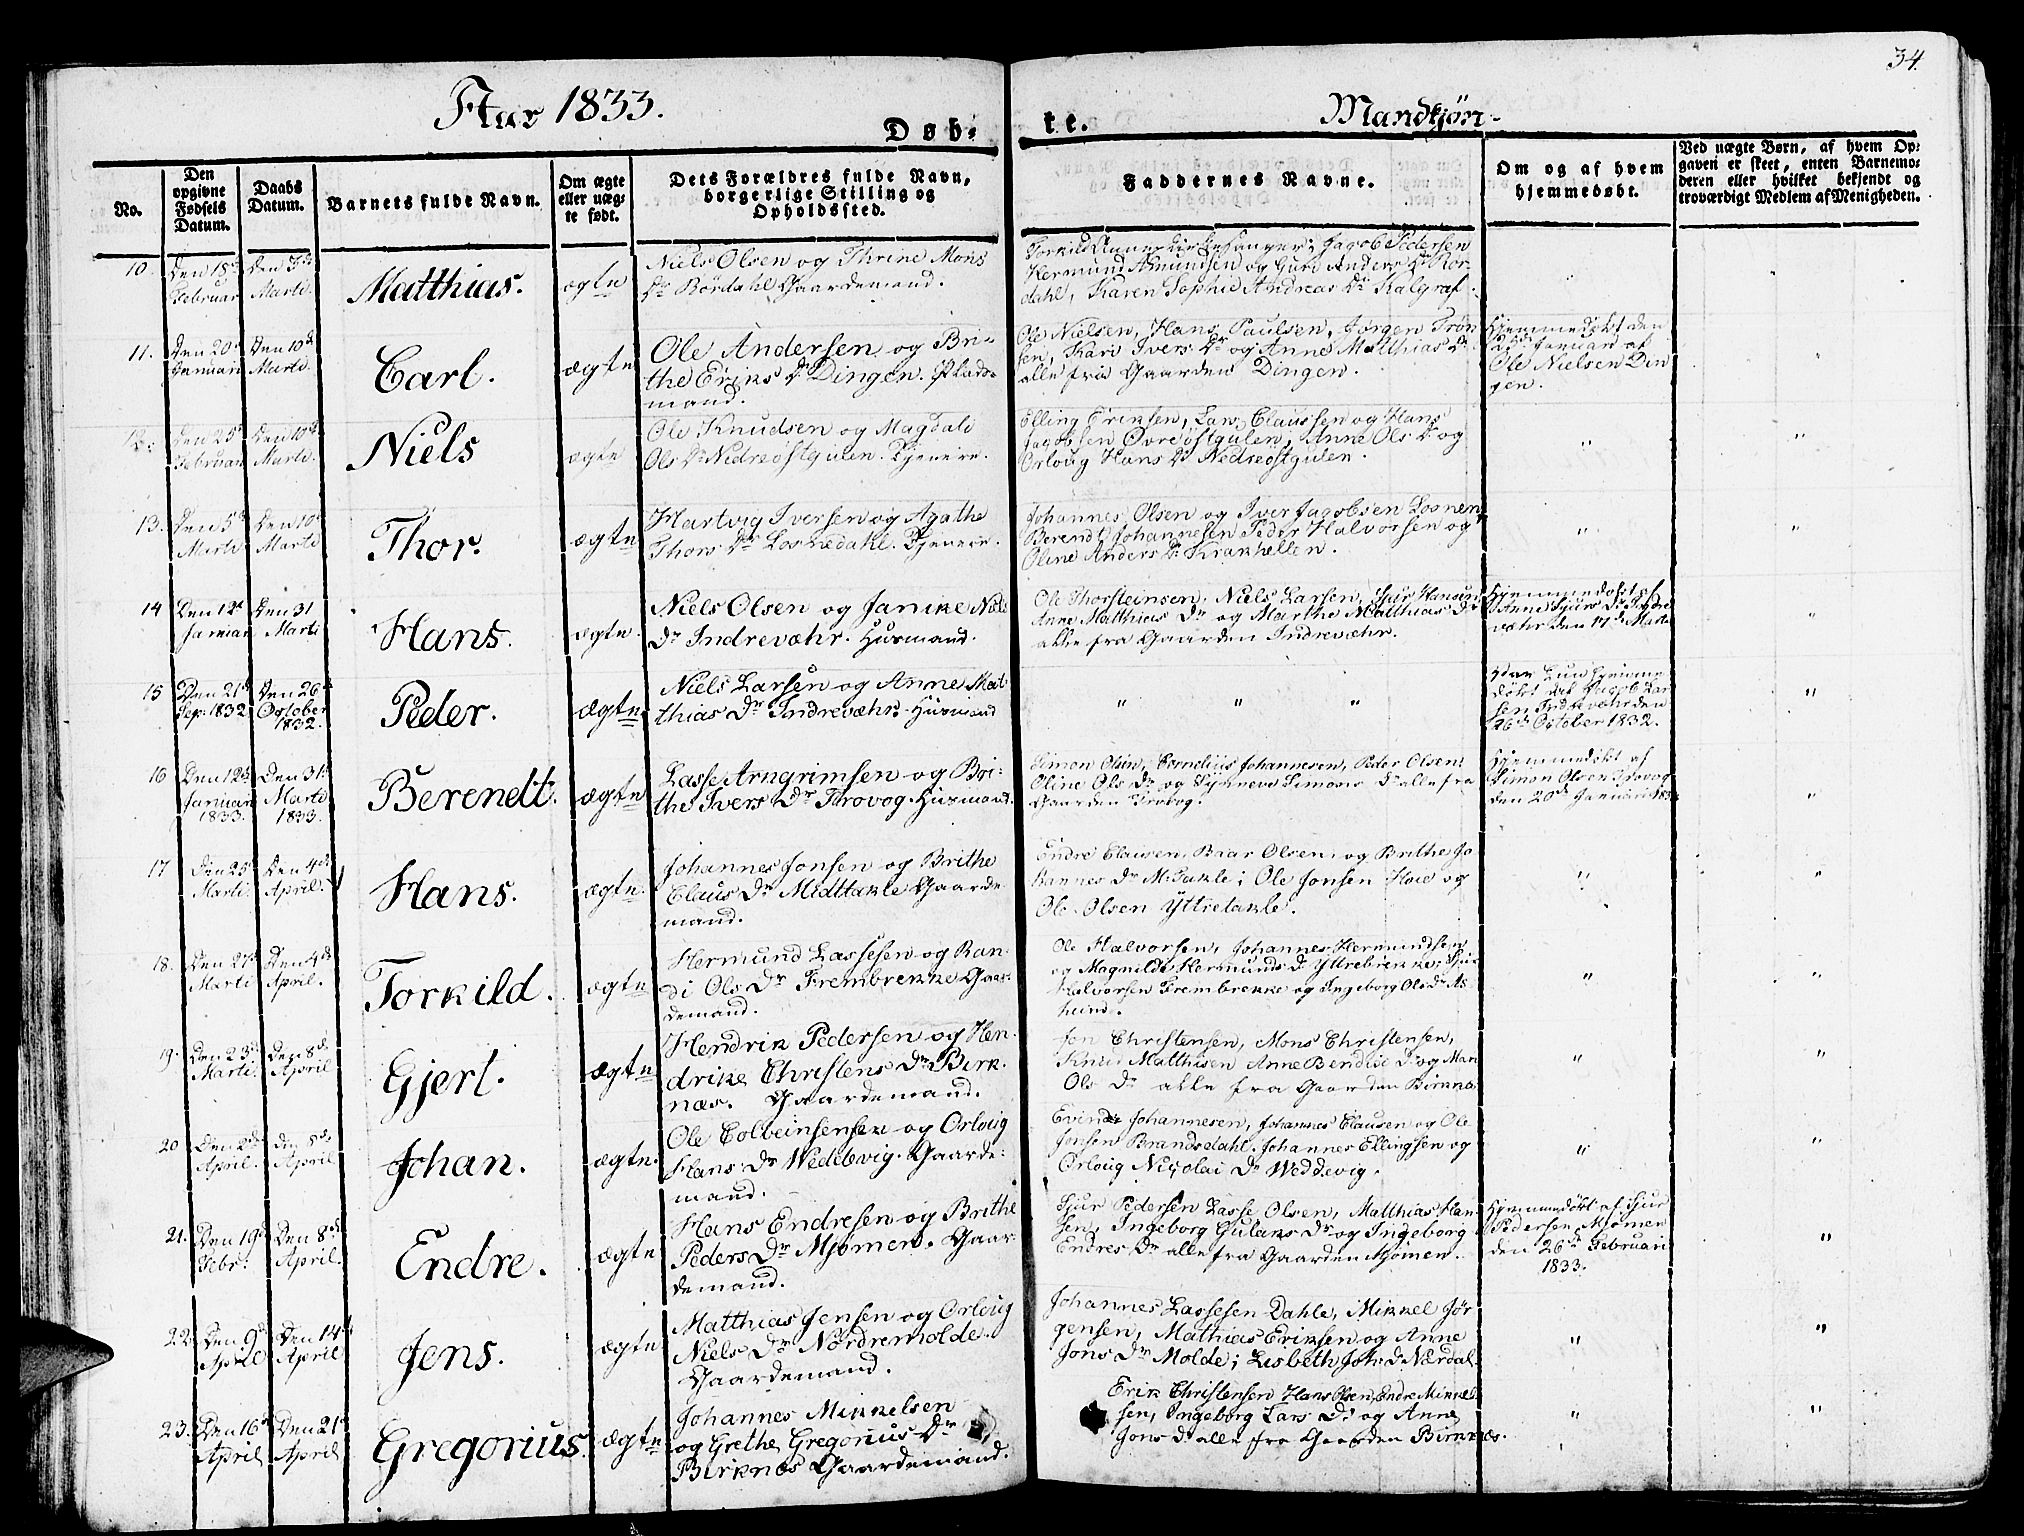 34.
Aar 1833.
Døb-
te.
Mandkjøn-
No.
Den opgivne Fødsels Datum.
Daabs Datum.
Barnets fulde Navn.
Om ægte eller uægte født.
Dets Forældres fulde Navn, borgerlige Stilling og Opholdssted.
Faddernes Navne.
Om og af hvem hjemmedøbt.
Ved uægte Børn, af hvem Op-
gaven er skeet, enten Barnemo-
deren eller hvilket bekjendt og
troværdigt Medlem af Menigheden.
10.
Den 18de Februar
Den 3de Marti.
Matthias.
ægte
Niels Olsen og Thrine Mons
Dr Bordahl Gaardemand.
Jacob Pedersen
Hermund Amundsen og Guri Anders Dr Bor-
dahl, Karen Sophie Andreas Dr Kalgraf.
11.
Den 20de Januar
Den 10de Marti.
Carl.
ægte
Ole Andersen og Bri-
the Eriks Dr Dingen. Plads-
mand.
Ole Nielsen, Hans Paulsen, Jørgen Trøn
sen, Kari Ivers Dr og Anne Matthias Dr
alle fra Gaarden Dingen.
Hjemmedøbt den
Januar af
Ole Nielsen Din
gen.
12.
Den 25de Februar
Den 10de Marti.
Niels
ægte
Ole Knudsen og Magdali
Ols Dr Nedreøstgulen. Tjenere.
Elling Eriksen, Lars Claussen og Hans
Jacobsen Øvreøstgulen, Anne Ols Dr og
Orloug Hans Dr Nedreøstgulen.
13.
Den 5de Marti
Den 10de Marti
Thor.
ægte
Hartvig Iversen og Agathe
Thors Dr Losnedahl. Tjenere.
Johannes Olsen og Iver Jacobsen Losnen
Berendt Johannesen Peder Halvorsen og
Oline Anders Dr Krakhellen.
14
Den 12te Januar
Den 31 Marti
Hans.
ægte.
Niels Olsen og Janike Niels
Dr Indrevæhr. Husmand.
Ole Thorsteinsen, Niels Larsen, Sjur Hansen,
Anne Matthias Dr og Marthe Matthias Dr
alle fra Gaarden Indrevæhr.
Hjemmedøbt af
Anne Sjurs Dr Indre
væhr den 17de Marti
15
Den 21de Sep. 1832
Den 26de October 1832.
Peder.
ægte
Niels Larsen og Anne Mat
thias Dr Indrevæhr. Husmand
Jacob Lar
sen Indrevæhr den
26de October 1832.
16
Den 12te Januar 1833.
Den 31te Marti 1833.
Berendt.
ægte
Lasse Arngrimsen og Bri-
the Ivers Dr Trovog. Husmand.
Simon Olsen, Cornelius Johannesen, Peder Olsen,
Oline Ols Dr og Synneve Simons Dr alle fra
Gaarden Trovog.
Hjemmedøbt af
Simon Olsen Trovog
den 20de Januari 1833
17
Den 25de Marti.
Den 4de April.
Hans.
ægte.
Johannes Jonsen og Brithe
Claus Dr Midttakle Gaarde-
mand.
Endre Clausen, Baar Olsen, og Brithe Jo
hannes Dr M:Takle; Ole Jonsen Hoie og
Ole Olsen Yttretakle.
18.
Den 27de Marti
Den 4de April.
Torkild.
ægte
Hermund Lassesen og Ran-
di Ols Dr Frembrekke Gaar-
demand.
Ole Halvorsen, Johannes Hermundsen
og Magnilde Hermunds Dr Yttrebrekke; Sjur
Halvorsen Frembrekke og Ingeborg Ols Dr As
heim.
19.
Den 23de Marti
Den 8de April
Gjert.
ægte
Hendrik Pedersen og Hen-
drike Christens Dr Birk-
næs. Gaardemand.
Jon Christensen, Mons Christensen,
Knud Matthisen Anne Bendise Dr og Mari
Ols Dr alle fra Gaarden Birknæ
20
Den 2de April.
Den 8de April
Johan.
ægte.
Ole Colbeinsensen og Orloug
Hans Dr Wedevig. Gaarde-
mand.
Johannesen, Johannes Clausen og Ole
Jensen Brandsdahl. Johannes Ellingsen og
Orloug Nicolai Dr Weddevig.
21.
Den 19de Febr:
Den 8de April.
Endre.
ægte
Hans Endresen og Brithe
Peders Dr Mjømen. Gaar-
demand.
Sjur Pedersen Lasse Olsen, Matthias Han-
sen, Ingeborg Gulaks Dr og Ingeborg
Endres Dr alle fra Gaarden Mjømen.
Hjemmedøbt af Sjur
Pedersen Mjømen
den 26de Februari
1833.
22.
Den 9de April
Den 14de April
Jens.
ægte
Matthias Jensen og Orloug
Niels Dr Nordremolde.
Gaardemand.
Johannes Lassesen Dahle, Mikkel Jør
gensen, Mathias Eriksen og Anne
Jons Dr Molde; Lisbeth Joh: D. Nærdal.
23.
Den 16de April
Den 21de April
Gregorius.
ægte
Johannes Mikkelsen
og Grethe Gregorius Dr
Birknæs Gaardemand.
Erik Christensen Hans Olsen, Endre Mikkel
sen, Ingeborg Lars Dr og Anne
Jons Dr alle fra Gaarden Birknæs.